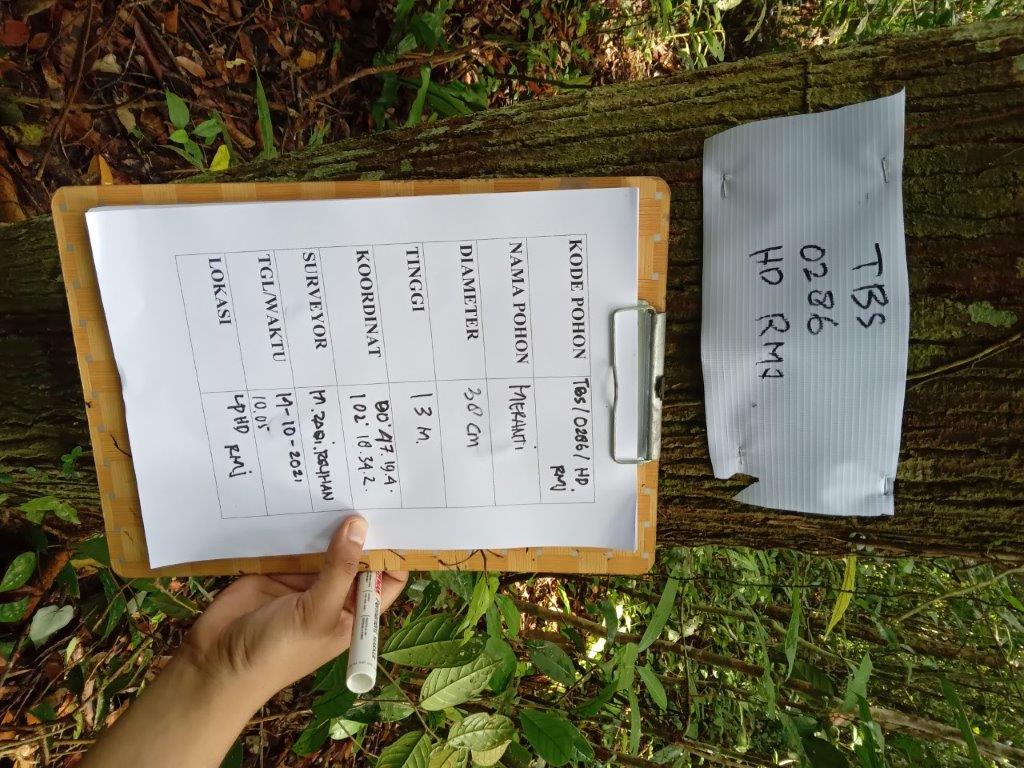 TBS
0286
HD RMJ
KODE POHON TBS/0286/HD.
RMJ
NAMA POHON MERANTI
DIAMETER 38 cm
TINGGI 13 M.
KOORDINAT 00°47.19.4.
102° 18.34.2.
SURVEYOR
TGL/WAKTU 14-10-2021
10.05
LOKASI LPHD RMJ
PERMANENT MARKER